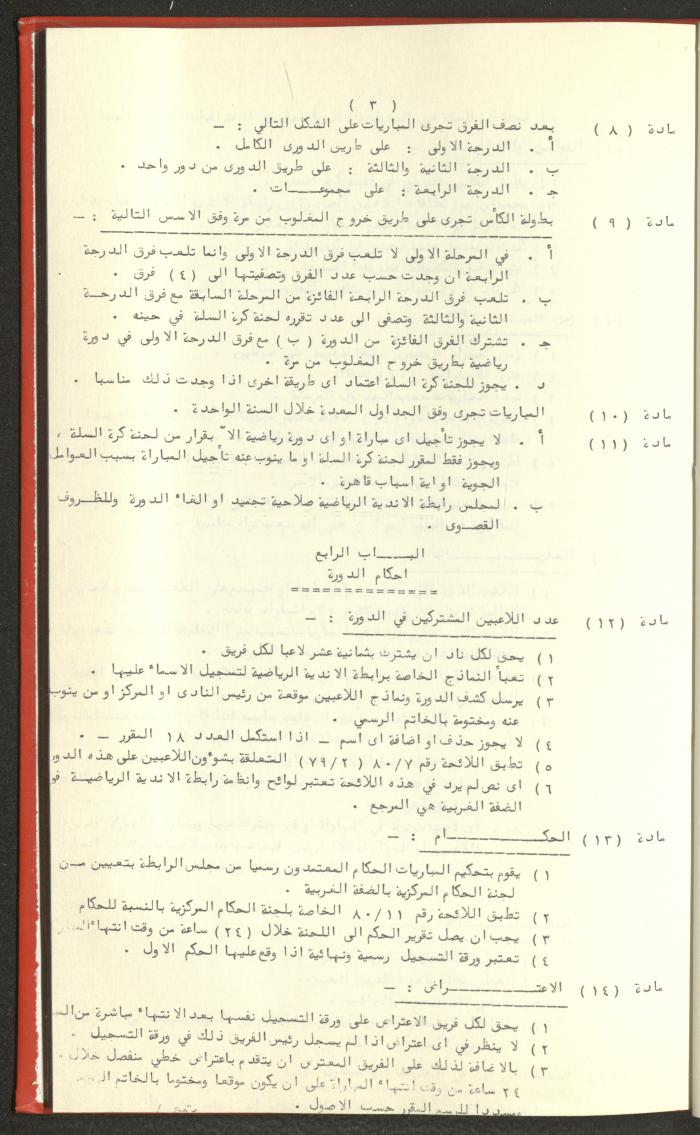 ( ٣ )
مادة ( ٨ ) بعد نصف الفرق تجرى المباريات على الشكل التالي : ــ
أ . الدرجة الاولى : على طريق الدورى الكامل .
ب . الدرجة الثانية والثالثة : على طريق الدورى من دور واحد .
ج . الدرجة الرابعة : على مجموعـــــات .
مادة ( ٩ ) بطولة الكأس تجرى على طريق خروج المغلوب من مرة وفق الاسس التالية : ــ
أ . في المرحلة الاولى لا تلعب فرق الدرجة الاولى وانما تلعب فرق الدرجة
الرابعة ان وجدت حسب عدد الفرق وتصفيتها الى (٤) فرق .
ب . تلعب فرق الدرجة الرابعة الفائزة من المرحلة السابقة مع فرق الدرجــة
الثانية والثالثة وتصفى الى عدد تقرره لجنة كرة السلة في حينه .
ج . تشترك الفرق الفائزة من الدورة ( ب ) مع فرق الدرجة الاولى في دورة
رياضية بطريق خروج المغلوب من مرة .
د . يجوز للجنة كرة السلة اعتماد اى طريقة اخرى اذا وجدت ذلك مناسبا .
مادة (١٠) المباريات تجرى وفق الجداول المعدة خلال السنة الواحدة .
مادة (١١) أ . لا يجوز تأجيل اى مباراة او اى دورة رياضية الاّ بقرار من لجنة كرة السلة ،
ويجوز فقط لمقرر لجنة كرة السلة او ما ينوب عنه تأجيل المباراة بسبب العوامل
الجوية او اية اسباب قاهرة .
ب . لمجلس رابطة الاندية الرياضية صلاحية تجميد او الغاء الدورة وللظــروف
القصــوى .
البـــــاب الرابع
احكام الدورة
==============
مادة (١٢) عدد اللاعبين المشتركين في الدورة : ــ
١ ) يحق لكل ناد ان يشترك بثمانية عشر لاعبا لكل فريق .
٢ ) تعبأ النماذج الخاصة برابطة الاندية الرياضية لتسجيل الاسماء عليها .
٣ ) يرسل كشف الدورة ونماذج اللاعبين موقعة من رئيس النادى او المركز او من ينوب
عنه ومختومة بالخاتم الرسمي .
٤ ) لا يجوز حذف او اضافة اى اسم ــ اذا استكمل العدد ١٨ المقرر ــ .
٥ ) تطبق اللائحة رقم ٨٠/٧ ( ٧٩/٢) المتعلقة بشوءون اللاعبين على هذه الدور
٦ ) اى نص لم يرد في هذه اللائحة تعتبر لوائح وانظمة رابطة الاندية الرياضيـــة في
الضفة الغربية هي المرجع .
مادة (١٣) الحكـــــــــــــام : ــ
١ ) يقوم بتحكيم المباريات الحكام المعتمدون رسميا من مجلس الرابطة بتعيين مــن
لجنة الحكام المركزية بالضفة الغربية .
٢ ) تطبق اللائحة رقم ٨٠/١١ الخاصة بلجنة الحكام المركزية بالنسبة للحكام
٣ ) يجب ان يصل تقرير الحكم الى اللجنة خلال (٢٤) ساعة من وقت انتهاء
٤ ) تعتبر ورقة التسجيل رسمية ونهائية اذا وقع عليها الحكم الاول .
مادة (١٤) الاعتـــــــــــــراض : ــ
١ ) يحق لكل فريق الاعتراض على ورقة التسجيل نفسها بعد الانتهاء مباشرة من
٢ ) لا ينظر في اى اعتراض اذا لم يسجل رئيس الفريق ذلك في ورقة التسجيل .
٣ ) بالاضافة لذلك على الفريق المعترض ان يتقدم باعتراض خطي منفصل خلال
٢٤ ساعة من وقت انتهاء المباراة على ان يكون موقعا ومختوما بالخاتم
ومسددا للرسم المقرر حسب الاصول .
يتبع /